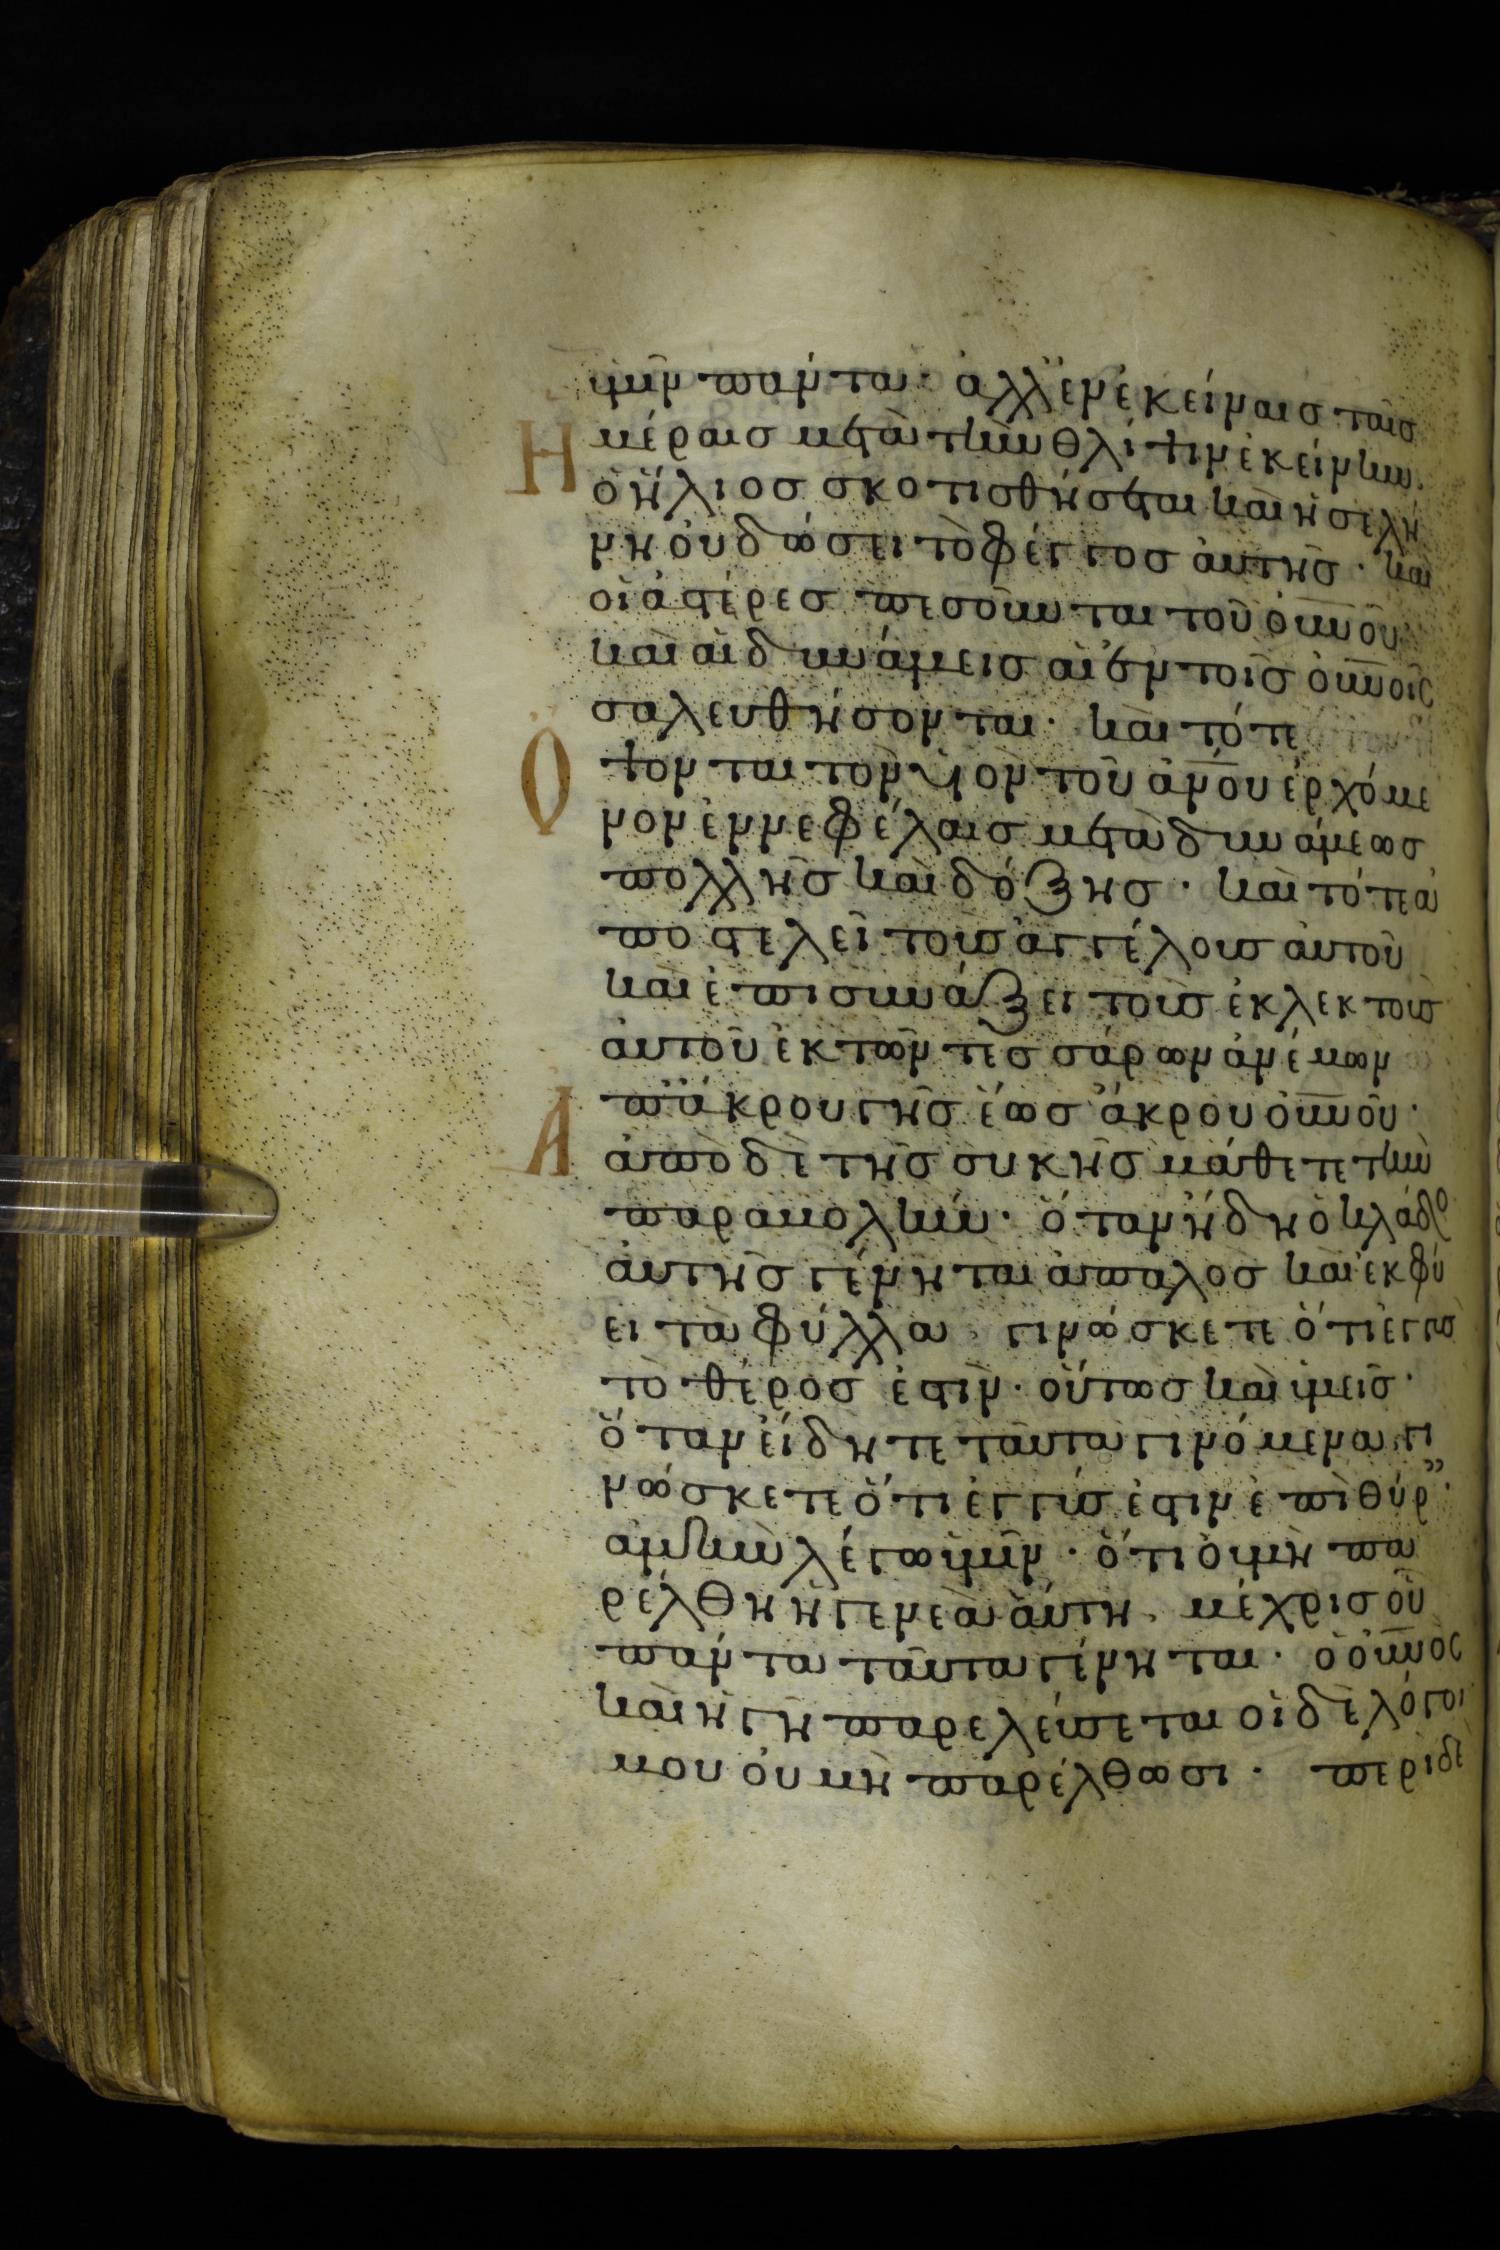 ὑμῖν πάντα· ἀλλ' ἐν ἐκείναις ταῖς
Ἡ μέραις μετὰ τὴν θλίψιν ἐκείνην·
ὁ ἥλιος σκοτισθήσεται καὶ ἡ σελή
νη οὐ δώσει τὸ φέγγος αὐτῆς· καὶ
οἱ ἀστέρες πεσοῦνται τοῦ οὐνοῦ
καὶ αἱ δυνάμεις αἱ ἐν τοῖς οὐνοῖς
σαλευθήσονται· καὶ τότε
Ὄ ψονται τὸν υἱὸν τοῦ ἀνου ἐρχόμε
νον ἐν νεφέλαις μετὰ δυνάμεως
πολλῆς καὶ δόξης· καὶ τότε ἀ
ποστελεῖ τοὺς ἀγγέλους αὐτοῦ
καὶ ἐπισυνάξει τοὺς ἐκλεκτοὺς
αὐτοῦ ἐκ τῶν τεσσάρων ἀνέμων
ἀπ' ἄκρου γῆς ἕως ἄκρου οὐνοῦ·
Ἀ ἀπὸ δὲ τῆς συκῆς μάθετε τὴν
παραβολήν· ὅταν ἤδη ὁ κλάδος
αὐτῆς γένηται ἁπαλὸς καὶ ἐκφύ
ει τὰ φύλλα, γινώσκετε ὅτι ἐγγὺς
τὸ θέρος ἐστίν· οὕτως καὶ ὑμεῖς·
ὅταν εἴδητε ταῦτα γινόμενα, γι
νώσκετε ὅτι ἐγγύς ἐστιν ἐπὶ θύρ·
ἀμὴν λέγω ὑμῖν· ὅτι οὐ μὴ πα
ρέλθη ἡ γενεὰ αὕτη, μέχρις οὗ
πάντα ταῦτα γένηται· ὁ οὐνὸς
καὶ ἡ γῆ παρελεύσεται οἱ δὲ λόγοι
μου οὐ μὴ παρέλθωσι· περὶ δὲ